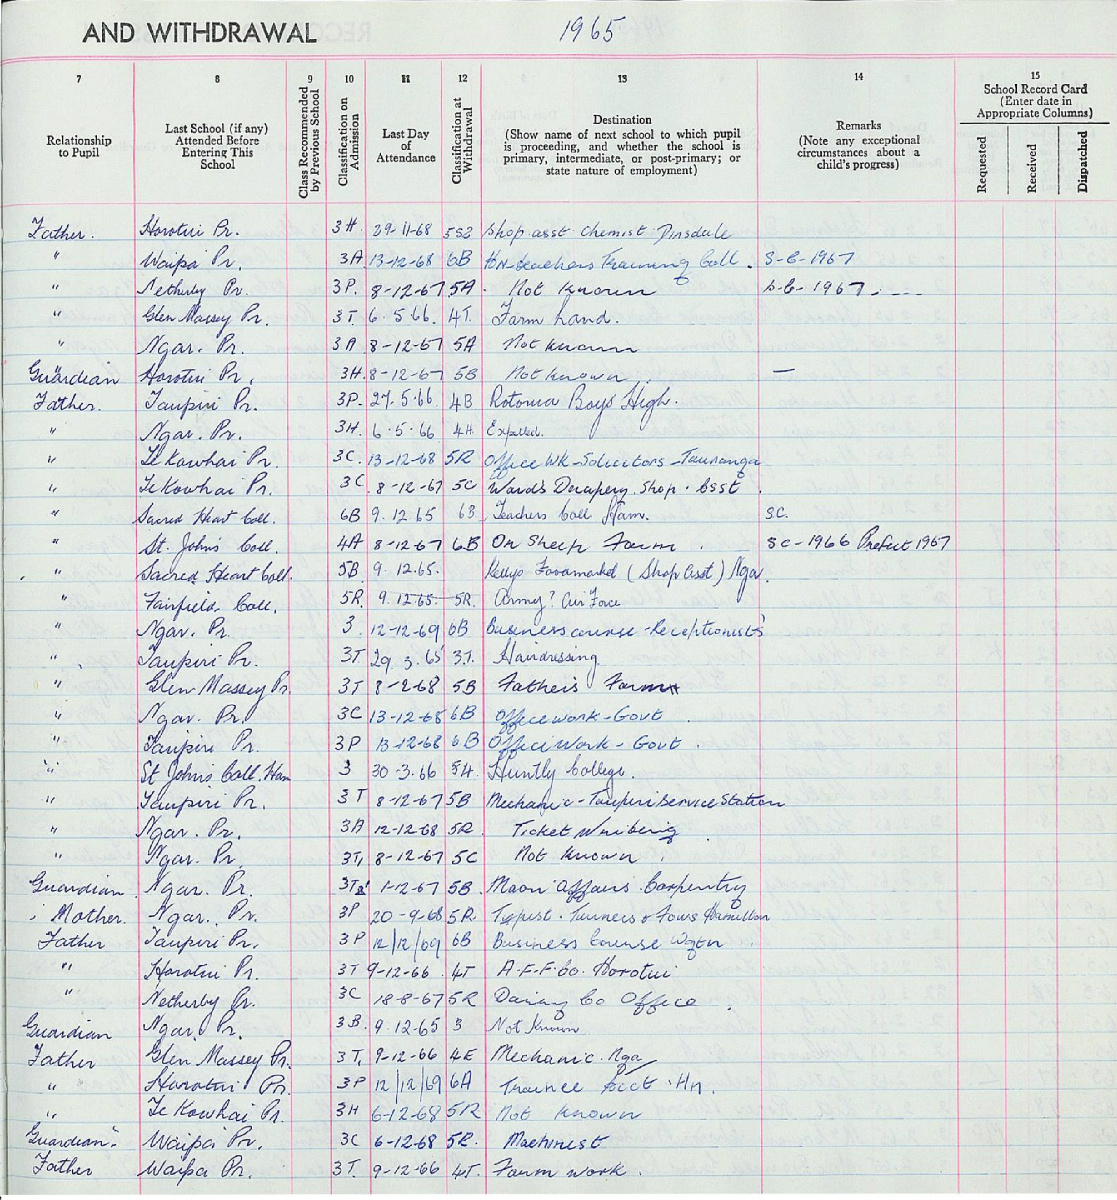 AND WITHDRAWAL 1965
7 8 9 10 11 12 13 14 15
Relationship to Pupil
Last School (if any) Attended Before Entering This School
Class Recommended by Previous School
Classification on Admission
Last Day of Attendance
Classification at Withdrawal
Destination (Show name of next school to which pupil is proceeding, and whether the school is primary, intermediate, or post-primary; or state nature of employment)
Remarks (Note any exceptional circumstances about a child's progress)
School Record Card (Enter date in Appropriate Columns)
Requested Received Dispatched
Father. Horotiu Pr. 3H 29-11-68 5S2 Shop asst Chemist Dinsdale
" Waipa Pr. 3A 13-12-68 6B Hn-teachers Training Coll. S-C-1967
" Netherby Pr. 3P. 8-12-67 5A. Not known S-C-1967
" Glen Massey Pr. 3T 6.5.66. 4T. Farm hand.
" Ngar. Pr. 3A 8-12-67 5A Not known
Guardian Horotiu Pr. 3H 8-12-67 5B Not known. —
Father. Taupiri Pr. 3P. 27.5.66. 4B Rotorua Boys High.
" Ngar. Pr. 3H. 6.5.66 4H Expelled.
" Te Kowhai Pr. 3C. 13-12-68 5R Office Wk-Solicitors-Tauranga
" Te Kowhai Pr. 3C 8-12-67 5C Ward's Drapery Shop. Asst.
" Sacred Heart Coll. 6B 9.12.65 6B Teachers Coll Ham. SC.
" St. John's Coll. 4A 8-12-67 6B On Sheep Farm. SC-1966 Prefect 1967
" Sacred Heart Coll. 5B 9.12.65. Kellys Foodmarket (Shop Asst) Nga.
" Fairfield Coll. 5R. 9.12.65. 5R. Army? Air Force
" Ngar. Pr. 3. 12-12-69 6B Business course-Receptionists
" Taupiri Pr. 3T 29.3.65 3.T. Hairdressing
" Glen Massey Pr. 3T 8-2-68 5B Father's Farm
" Ngar. Pr. 3C 13-12-68 6B Office work-Govt
" Taupiri Pr. 3P 13-12-68 6B Office Work-Govt.
" St John's Coll. Ham 3 30-3.66 Huntly College.
" Taupiri Pr. 3T 8-12-67 5B Mechanic-Taupiri Service Station
" Ngar. Pr. 3A 12-12-68 5R. Ticket Writing
" Ngar. Pr. 3T, 8-12-67 5C Not known.
Guardian Ngar. Pr. 1-12-67 5B Maori Affairs Carpentry
Mother. Ngar. Pr. 3P 20-9-68 5R. Typist. Turners & Hamilton
Father Taupiri Pr. 3P 12/12/69 6B Business Course Wgtn
" Horotiu Pr. 3T 9-12-66 4T A.F.F.Co. Horotiu
" Netherby Pr. 3C 18-8-67 5R Dairy Co Office.
Guardian Ngar. Pr. 3B. 9.12.65 3 Not Known
Father Glen Massey Pr. 3T, 9-12-66 4E Mechanic. Nga
" Horotiu Pr. 3P 12/12/69 6A Trainee Acct. Hn.
" Te Kowhai Pr. 3H 6-12-68 5R Not known
Guardian Waipa Pr. 3C 6-12-68 5R. Machinist
Father Waipa Pr. 3T. 9-12-66 4T. Farm work.